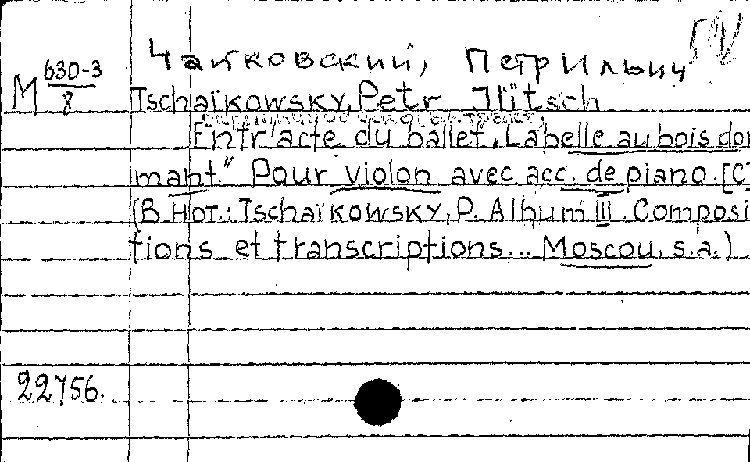 Чайковский, Петр Ильич
М 630-3
8
Tschaïkowsky, Petr Ilitsch
Entr'acte du ballet „La belle au bois dor
mant." Pour violon avec acc. de piano. [С]
(В нот.: Tschaïkowsky, P. Album III. Composi
tions et transcriptions... Moscou, s.a.)
22756.